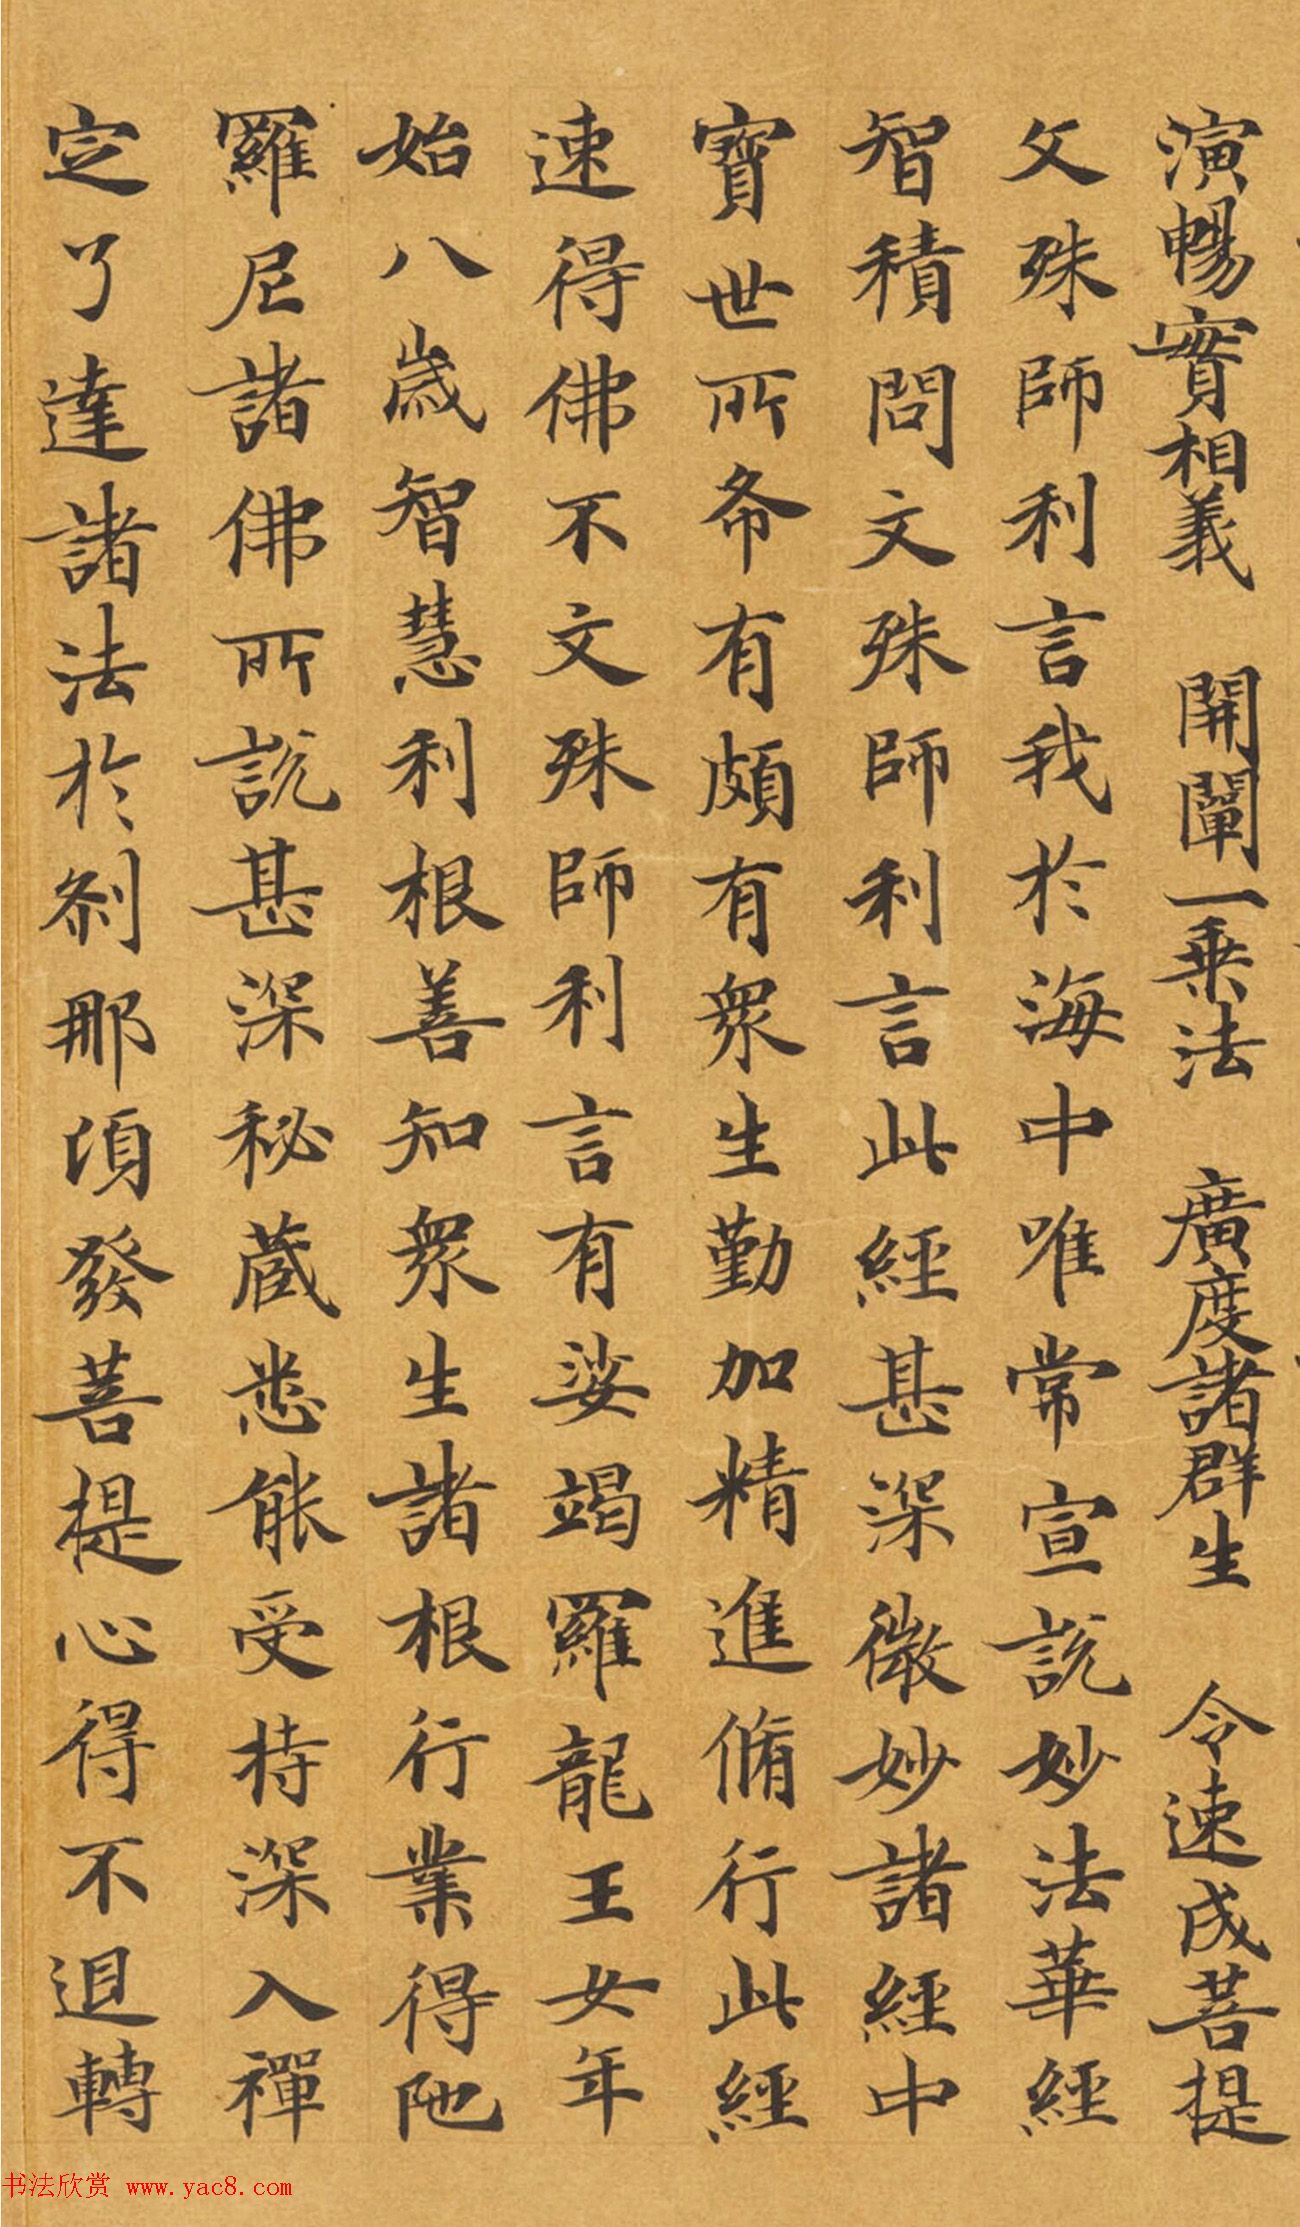 演暢實相義　開闡一乗法　廣度諸群生　令速成菩提
文殊師利言我於海中唯常宣說妙法華經
智積問文殊師利言此經甚深微妙諸經中
寶世所希有頗有衆生勤加精進脩行此經
速得佛不文殊師利言有娑竭羅龍王女年
始八歲智慧利根善知衆生諸根行業得陁
羅尼諸佛所說甚深秘蔵悉能受持深入禪
定了達諸法於剎那頃發菩提心得不退轉
书法欣赏 www.yac8.com